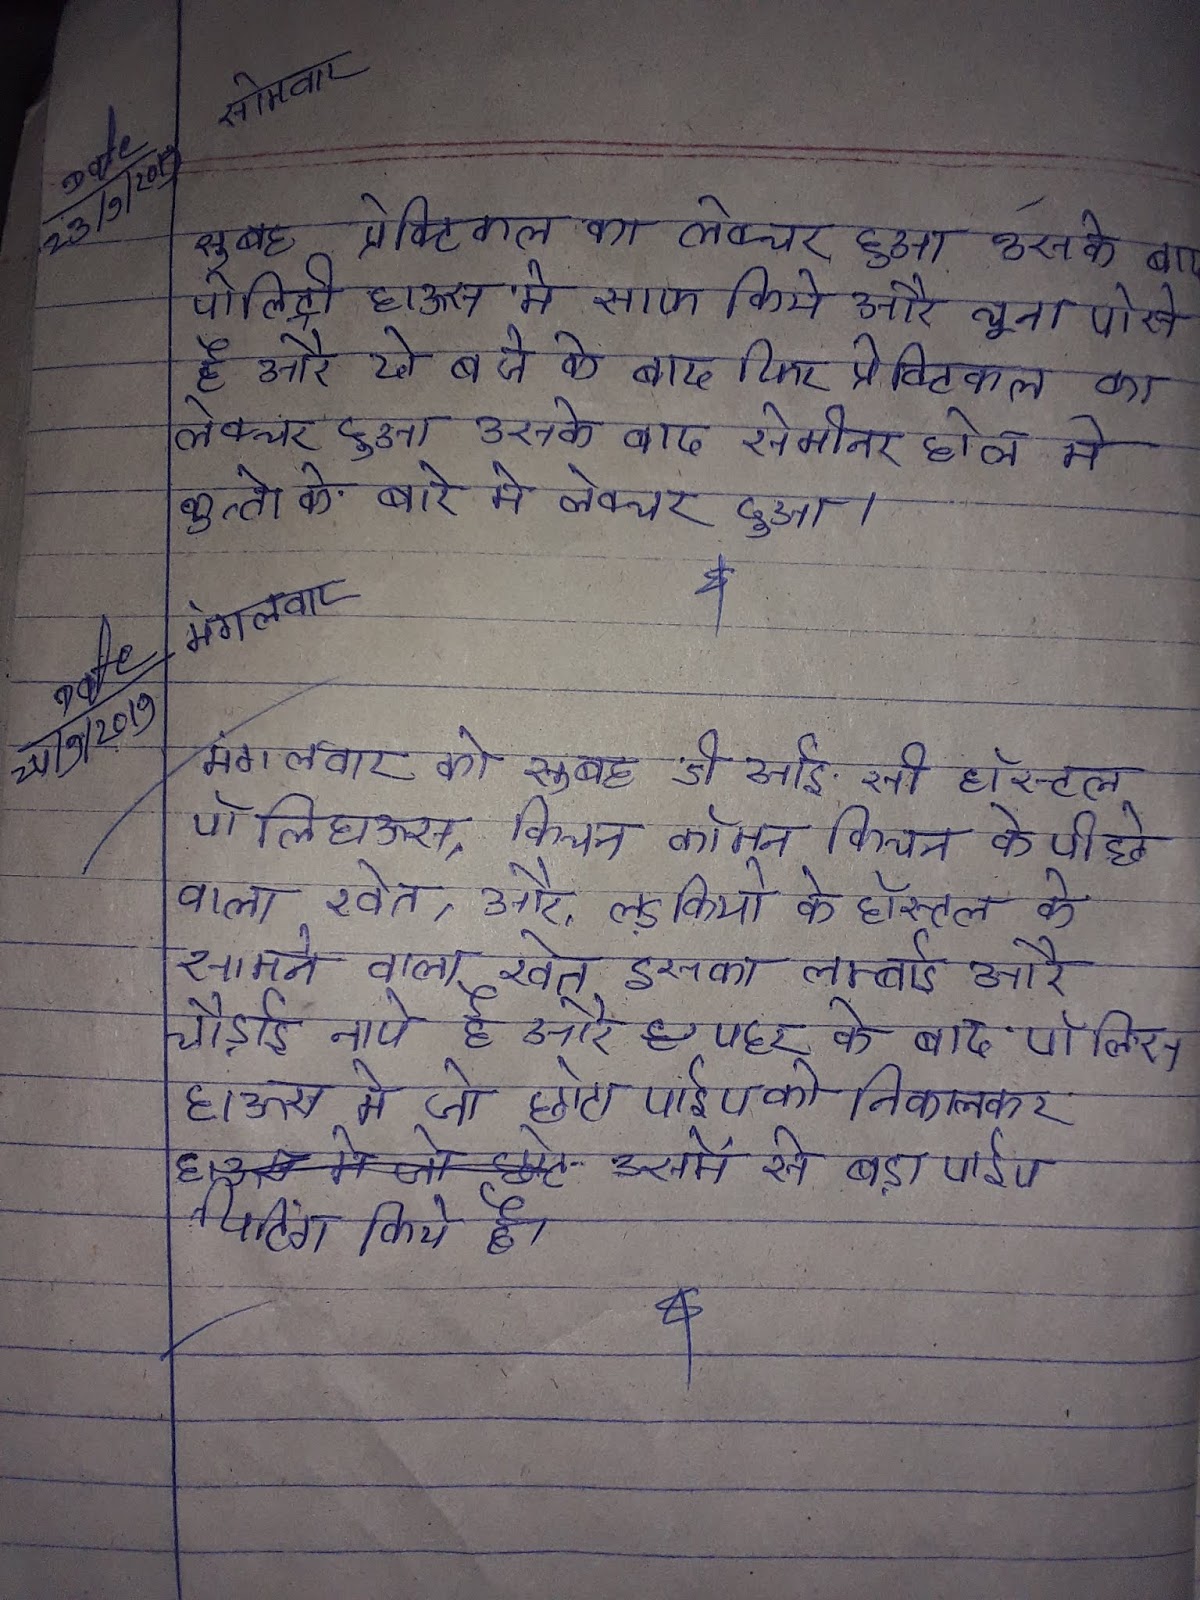 सोमवार
Date
23/9/2019
सुबह प्रेक्टिकल का लेक्चर हुआ उसके बाद
पोलिट्री हाऊस मे साफ किये और चूना पोते
है और दो बजे के बाद फिर प्रेक्टिकल का
लेक्चर हुआ उसके बाद सेमीनर होल मे
कुत्तो के बारे मे लेक्चर हुआ।
मंगलवार
Date
24/9/2019
मंगलवार को सुबह डी आई सी हॉस्टल
पॉलिहाऊस, किचन कॉमन किचन के पीछे
वाला खेत, और, लड़कियो के हॉस्टल के
सामने वाला खेत इसका लम्बाई और
चौड़ाई नापे है और पहर के बाद पॉलिस
हाऊस मे जो छोटा पाईप को निकालकर
उसमें से बड़ा पाईप
फिटिंग किये है।